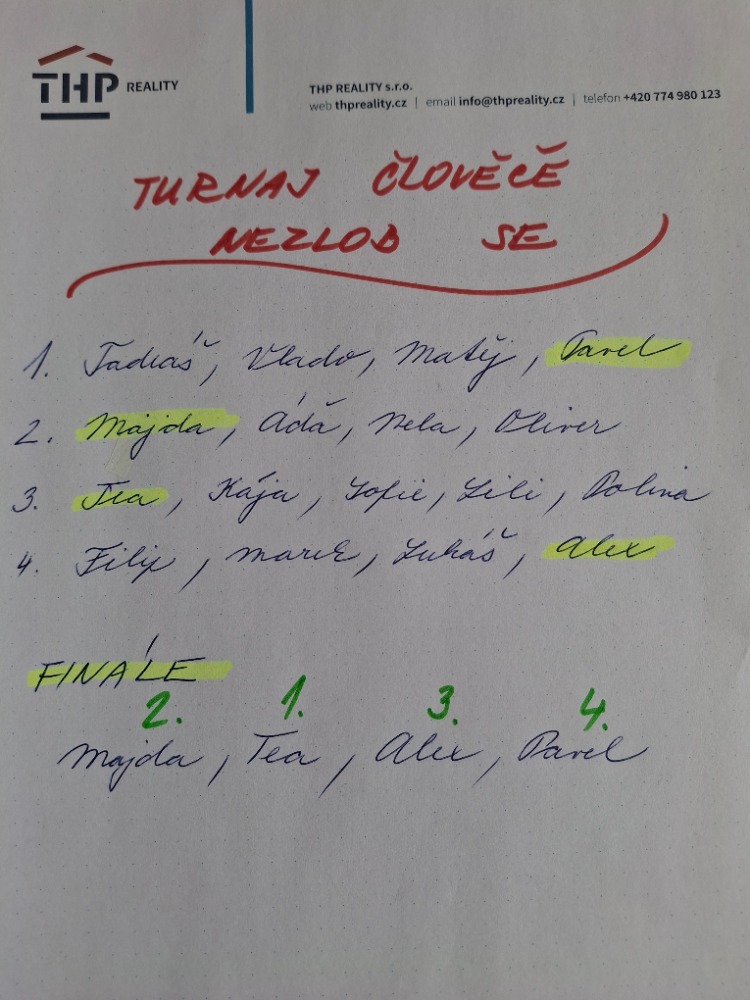 THP REALITY
THP REALITY s.r.o.
web thpreality.cz | email info@thpreality.cz | telefon +420 774 980 123
TURNAJ ČLOVĚČĚ
NEZLOB SE
1. Tadeáš, Vlado, Matěj, Pavel
2. Majda, Áďa, Nela, Oliver
3. Tea, Kája, Sofie, Lili, Polina
4. Filip, Marek, Lukáš, Alex
FINÁLE
2. 1. 3. 4.
Majda, Tea, Alex, Pavel